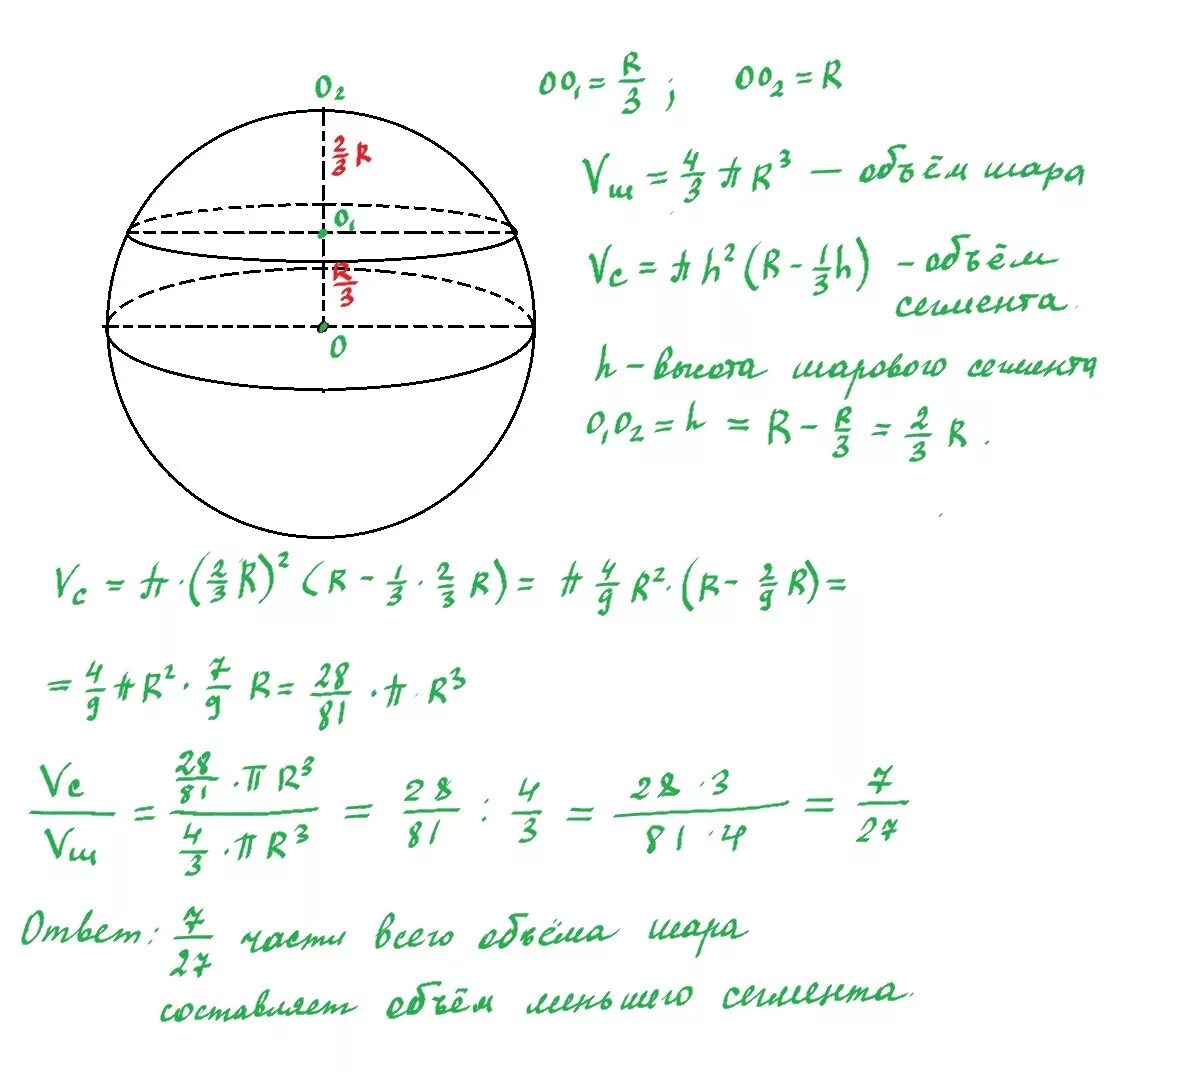 O₂
2/3 R
O₁
R/3
O
OO₁ = R/3 ; OO₂ = R
Vш = 4/3 π R³ — объём шара
Vс = π h² (R - 1/3 h) - объём
сегмента.
h - высота шарового сегмента
O₁O₂ = h = R - R/3 = 2/3 R .
Vс = π · (2/3 R)² (R - 1/3 · 2/3 R) = π 4/9 R² · (R - 2/9 R) =
= 4/9 π R² · 7/9 R = 28/81 · π · R³
Vс/Vш = (28/81 · π R³)/(4/3 · π R³) = 28/81 : 4/3 = (28 · 3)/(81 · 4) = 7/27
Ответ: 7/27 части всего объёма шара
составляет объём меньшего сегмента.